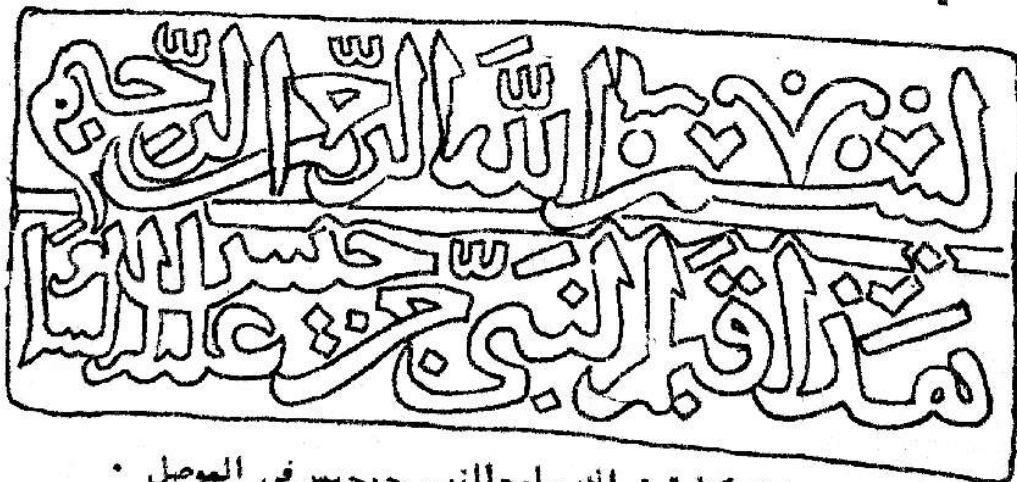 بسم الله الرحمن الرحيم
هذا قبر النبي جرجيس عليه السلام
للنبي جرجيس في الموصل .